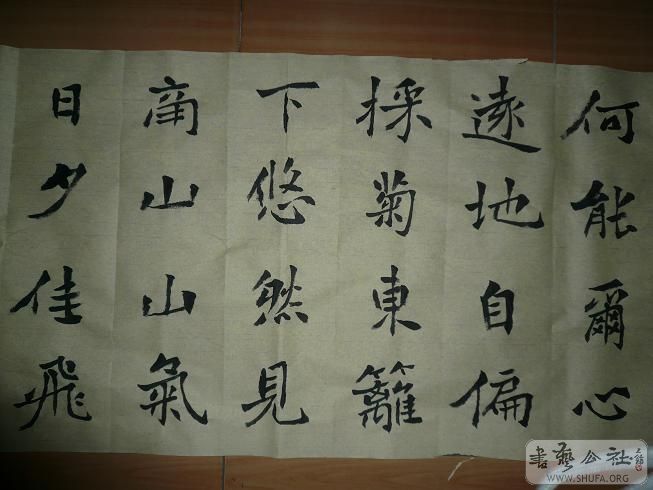 何能爾心
遠地自偏
採菊東籬
下悠然見
南山山氣
日夕佳飛
書藝公社
WWW.SHUFA.ORG